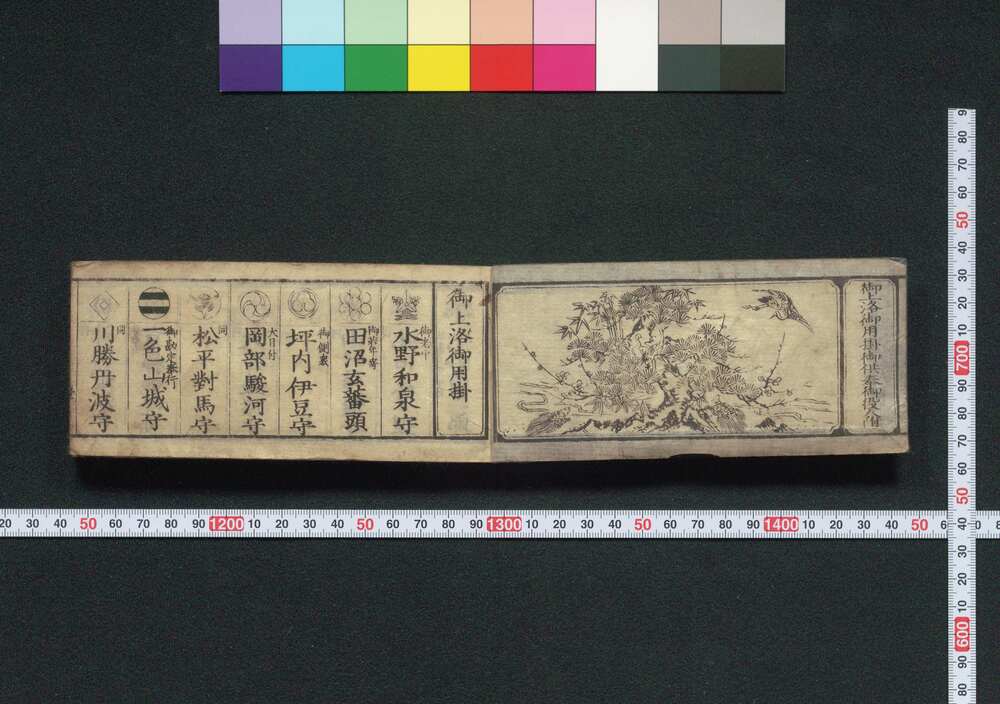 御上洛御用掛御供奉御役附
御上洛御用掛
御老中
水野和泉守
御若年寄
田沼玄蕃頭
御側衆
坪内伊豆守
大目付
岡部駿河守
同
松平對馬守
御勘定奉行
一色山城守
同
川勝丹波守
20 30 40 50 60 70 80 90 1200 10 20 30 40 50 60 70 80 90 1300 10 20 30 40 50 60 70 80 90 1400 10 20 30 40 50
9 80 70 60 50 40 30 20 10 700 90 80 70 60 50 40 30 20 10 600 90 80